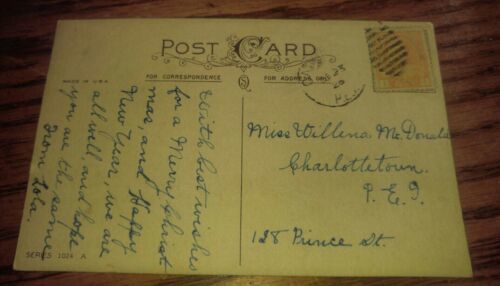 POST CARD
MADE IN U.S.A.
FOR CORRESPONDENCE
FOR ADDRESS ONLY
With best wishes
for a Merry Christ
mas, and Happy
New Year, we are
all well, and hope
you are the same
From Lola.
Miss Willena McDonald
Charlottetown
P.E.I.
128 Prince St.
SERIES 1024 A